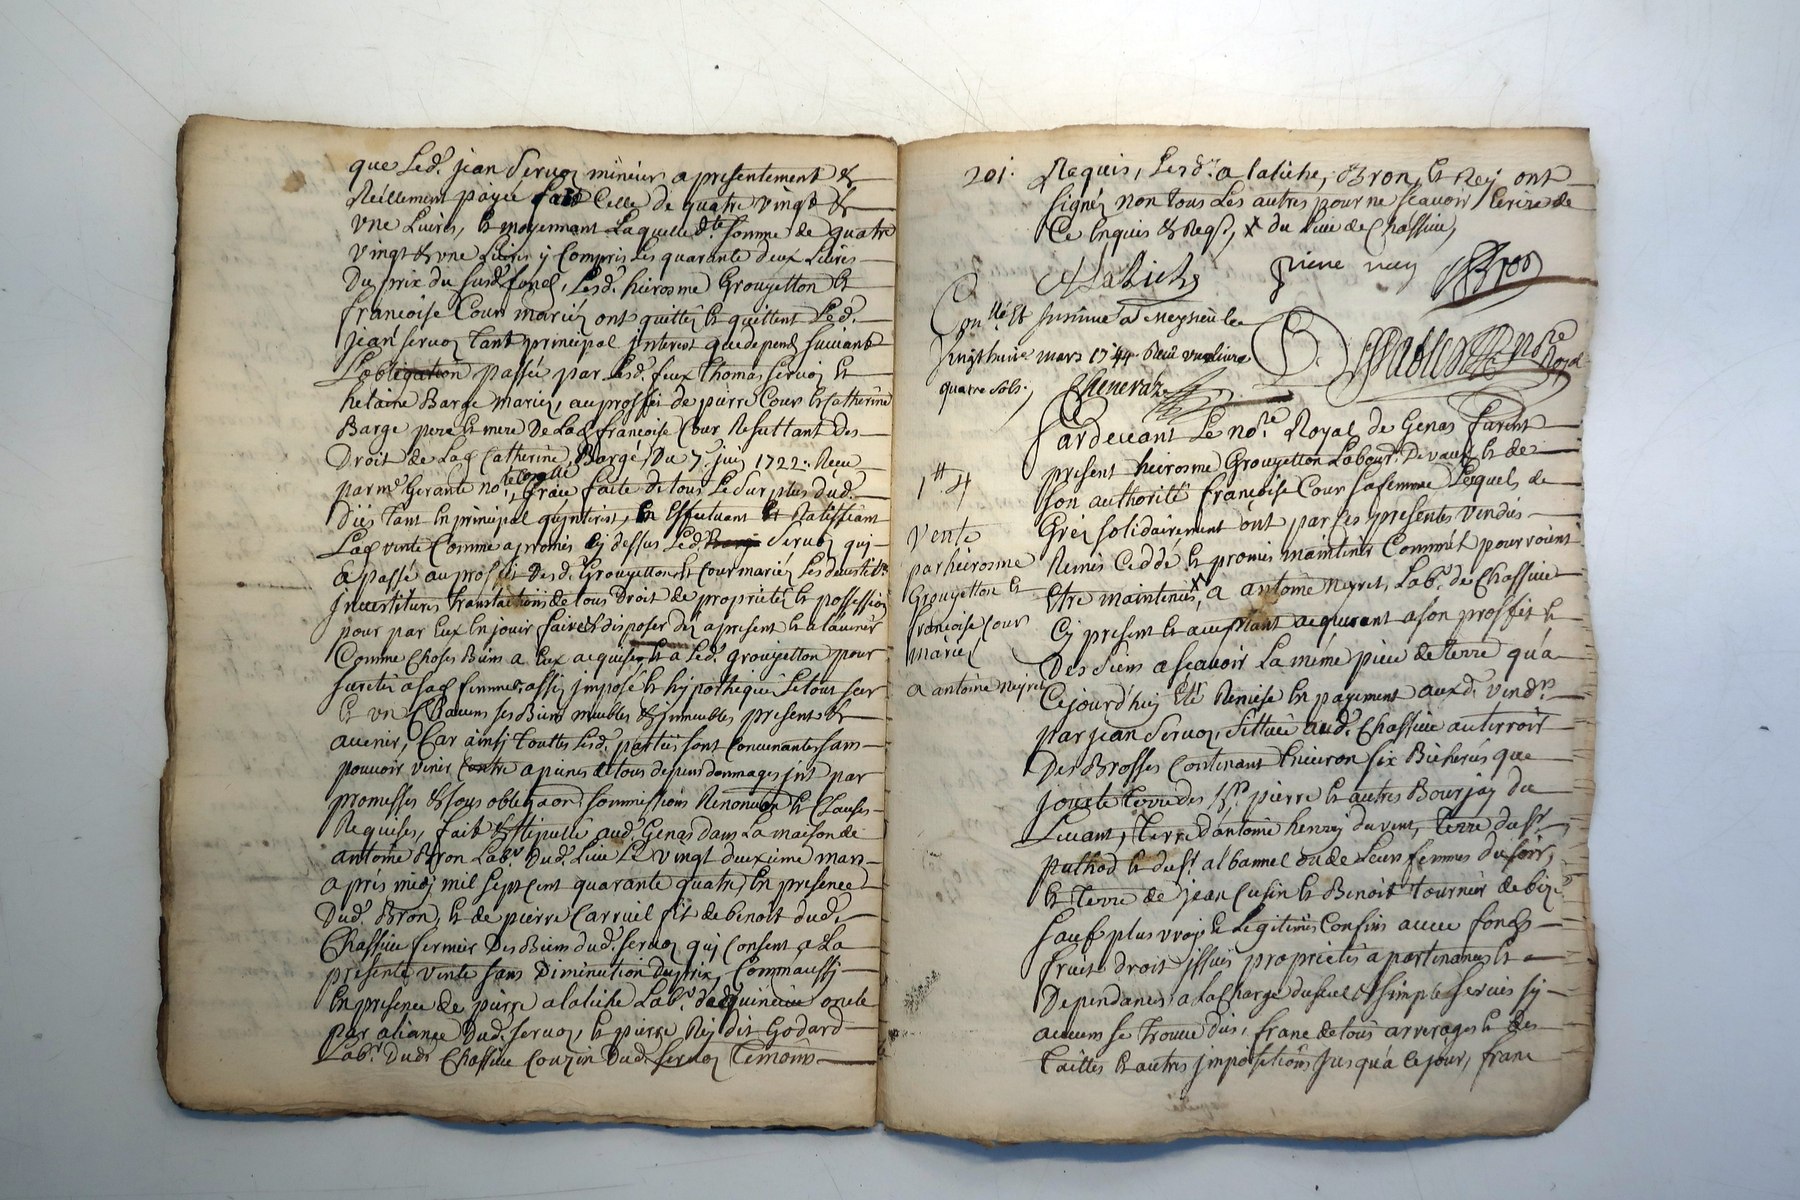 que Led.t jean Servoz mineur a presentement &
Réellement payée fait Celle de quatre vingt &
vne Livres, et moyennant Laquelle d.te somme de quatre
vingt & vne Livres y Compris Les quarante deux Livres
Du prix du susd.t fond, Lesd.t hierosme Grouyetton et
francoise Cour mariéz ont quittéz et quittent Led.t
jean Servoz Tant principal jnterest que depend suivant
L'obligation passée par Lesd. feux Thomas Servoz et
helaine Barge mariéz, au proffit de pierre Cour et Catherine
Barge pere et mere De Lad francoise Cour Resultant des
Droit de Lad Catherine Barge, Du 7.e juin 1722. Receu
par m.e Gerante no.re, Grace faite de tous Le surplus dud.
tant En principal qu'jnterest, En Effectuant Et Ratiffiant
Lad vente Comme a promis cy dessus Led. Servoz quj
a passé au proffit desd. Grouyetton et Cour mariéz Les devestit.
jnvestitures translactions de tous Droit de proprietéz et possession
pour par Eux En jouir faire & disposer déz a present et a L'avenir
Comme Choses Biens a Eux acquises Et a Led.t grouyetton pour
suretéz a sad femme assis jmposé et hypothequé Le tout sur
Et vn Chacuns ses Biens meubles & jmmeubles present et
avenir, Car ainsj Touttes Lesd. parties sont Convenantes sans
pouvoir venir Contre a peines de tous depens dommages jnt par
promesses & sous obligaon sommissions Renonciaon et Clauses
Requises, fait & stipullé aud. Genas dans La maison de
antoine Bron Lab.r Dud. Lieu Le vingt deuxieme mars
apréz midj mil sept Cent quarante quatre, En presence
Dud.t Bron, et de pierre Carruel fit de benoit dud.
Chassieu fermier Des Biens dud.t servoz quj Consent a La
presente vente sans Diminution du prix, Comm'aussj
En presence de pierre alabiche Lab.r oncle
par aliance Dud. Servoz, et pierre Rey dit Godard
Lab.r Dud. Chassieu Couzin Dud. Servoz Temoins
201. Requis, Lesd.ts alabiche, Bron, et Rey ont
signéz non tous Les autres pour ne scavoir Ecrire de
Ce Enquis & Req.s, x du Lieu de Chassieu,
Alabiche pierre rey Bron
Con.llé Et jnsinué a Meyzieu le
vingt huit mars 1744 Receu vne livre
quatre sols.
Par devant Le no.re Royal de Genas furent
1.tt 4 present hierosme Grouyetton Labour. De vaux et de
son authorité francoise Cour sa femme Lesquels de
Gréz solidairement ont par Les presentes vendus
Vente
par hierosme
Grouyetton et
francoise Cour
mariéz
a antoine Neyret
Remis Ceddé et promis maintenir Comm'et pourroient
Etre maintenus, a antoine Neyret, Lab.r de Chassieu
Cy present et acceptant acquerant a son proffit et
Des siens a scavoir La méme piece de terre qu'a
Cejourd'huy Eté Remise En payement auxd. vend.rs
par jean Servoz, Sittuée aud.t Chassieu au terroir
Des Brosses Contenant Environ six Bicherés que
jouxte terre des s.rs pierre et autres Bourjay du
Levant, Terre d'antoine henrj du vent, Terre du s.r
puthod et du s.r albannel ou de Leurs femmes du soir,
et Terre de jean Cusin et Benoit Tournier de bize
sauf plus vray et Legitimes Confins avec fonds
fruits droit jssues proprietés apartenances Et
Dependances a La Charge du seul & simple servis sy
aucuns se Trouve dus, franc de tous arrerages et des
Tailles et autres jmpositions jusqu'a Ce jour, franc